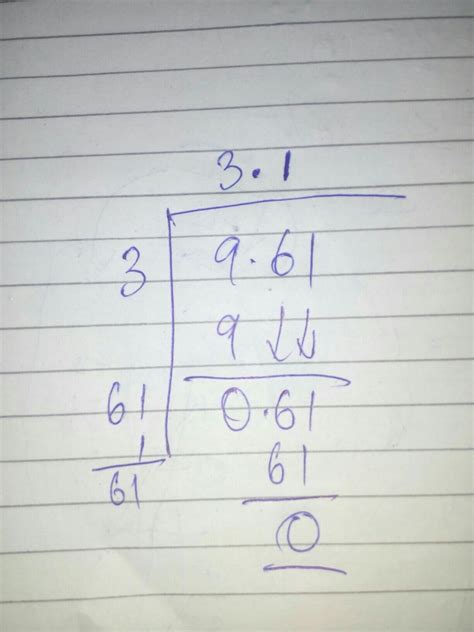 3.1
3 9.61
9 ↓↓
61 0.61
1 61
61 0